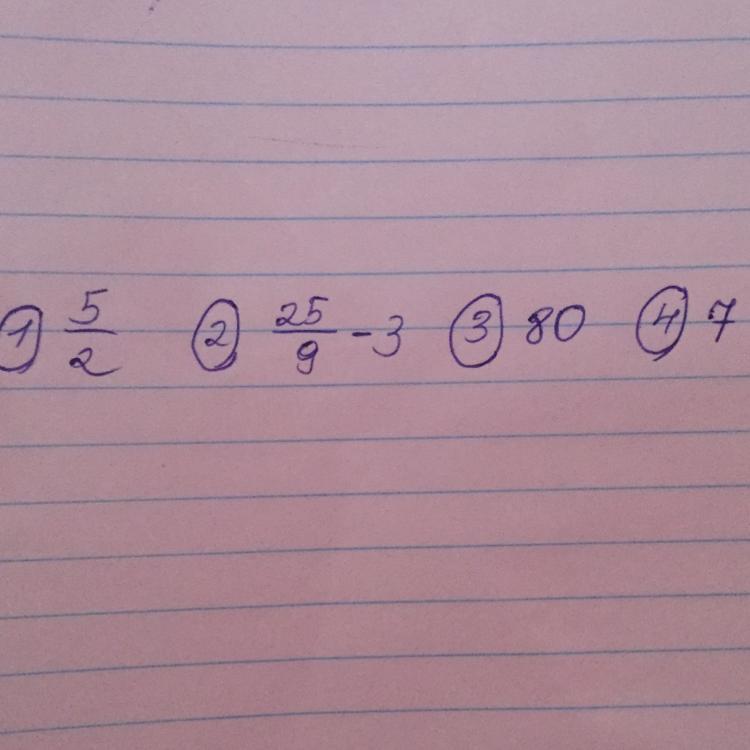 ① 5/2 ② 25/9 - 3 ③ 80 ④ 7